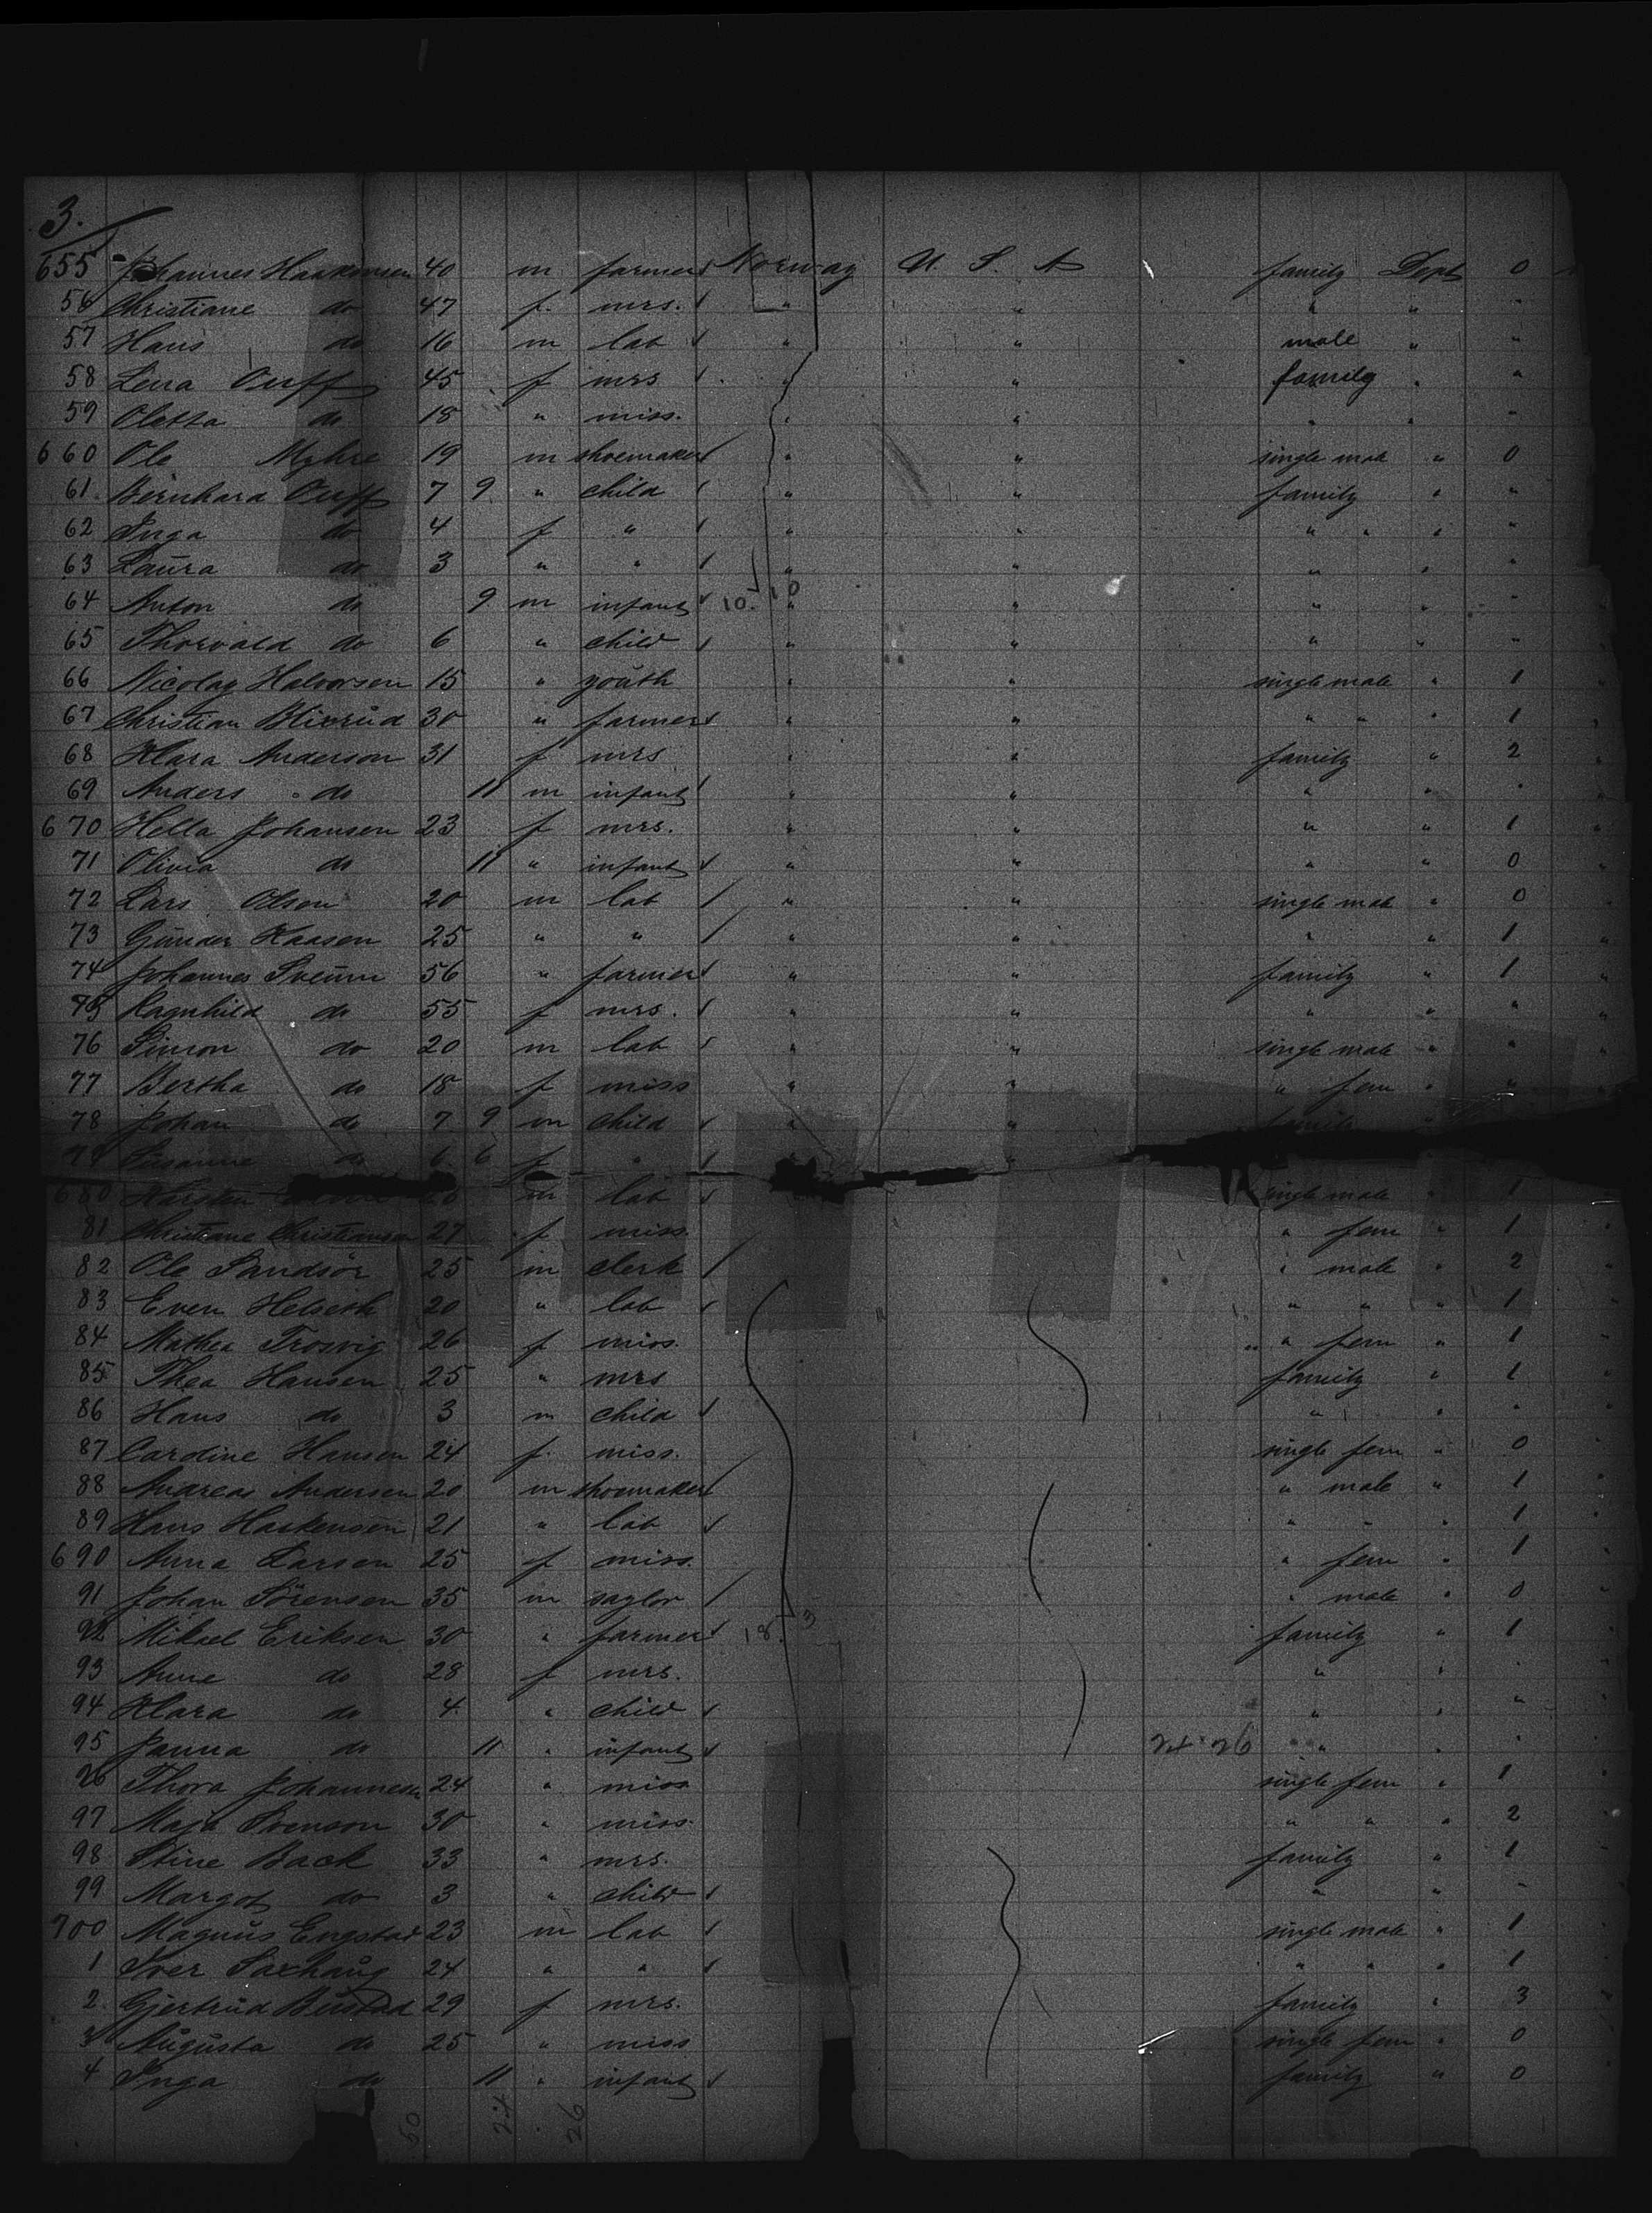 3.
655 Johannes Haakensen 40 m farmer Norway U. S. A family Dept 0
56 Christiane do 47 f. mrs. " " " " "
57 Hans do 16 m lab " " male " "
58 Lina Ouff 45 f mrs " " family " "
59 Oletta do 18 " miss. " " " " "
660 Ole Myhre 19 m shoemaker " " single male " 0
61 Bernhard Ouff 7 9 " child " " family " "
62 Inga do 4 f " " " " " "
63 Laura do 3 " " " " " " "
64 Anton do 9 m infant 10. 10 " " " " "
65 Thorvald do 6 " child " " " " "
66 Nicolay Halvorsen 15 " youth " " single male " 1
67 Christian Blixrud 30 " farmer " " " " " 1
68 Klara Anderson 31 f mrs " " family " 2
69 Anders do 11 m infant " " " " "
670 Hella Johansen 23 f mrs. " " " " 1
71 Olivia do 11 " infant " " " " 0
72 Lars Olsen 20 m lab " " single male " 0
73 Gunder Kaasen 25 " " " " " " 1
74 Johannes Sveum 56 " farmer " " family " 1
75 Ragnhild do 55 f mrs. " " " " "
76 Simon do 20 m lab " " single male " "
77 Bertha do 18 f miss " " " fem " "
78 Johan do 7 9 m child " " family
79 Susanne do 6 6 f " "
680 Karsten m lab single male " 1
81 Christiane Christiansen 27 f miss. " fem " 1
82 Ole Sandsör 25 m clerk " male " 2
83 Even Helseth 20 " lab " " " 1
84 Mathea Trosvig 26 f miss. " fem " 1
85 Thea Hansen 25 " mrs family " 1
86 Hans do 3 m child " " "
87 Cardine Hansen 24 f. miss. single fem " 0
88 Andreas Andersen 20 m shoemaker " male " 1
89 Hans Haakensen 21 " lab " " " 1
690 Anna Larsen 25 f miss. " fem " 1
91 Johan Sörensen 35 m saylor " male " 0
92 Mikael Eriksen 30 " farmer 18. 3 family " 1
93 Anne do 28 f mrs. " " "
94 Klara do 4 " child " " "
95 Janna do 11 " infant 24 26 " " "
96 Thora Johannesen 24 " miss single fem " 1
97 Maja Svenson 30 " miss. " " " 2
98 Stine Back 33 " mrs. family " 1
99 Margot do 3 " child " " "
700 Magnus Engstad 23 m lab single male " 1
1 Iver Saxhaug 24 " " " " " 1
2 Gjertrud Bustad 29 f mrs. family " 3
3 Augusta do 25 " miss single fem " 0
4 Inga do 11 " infant family " 0
50 24 26